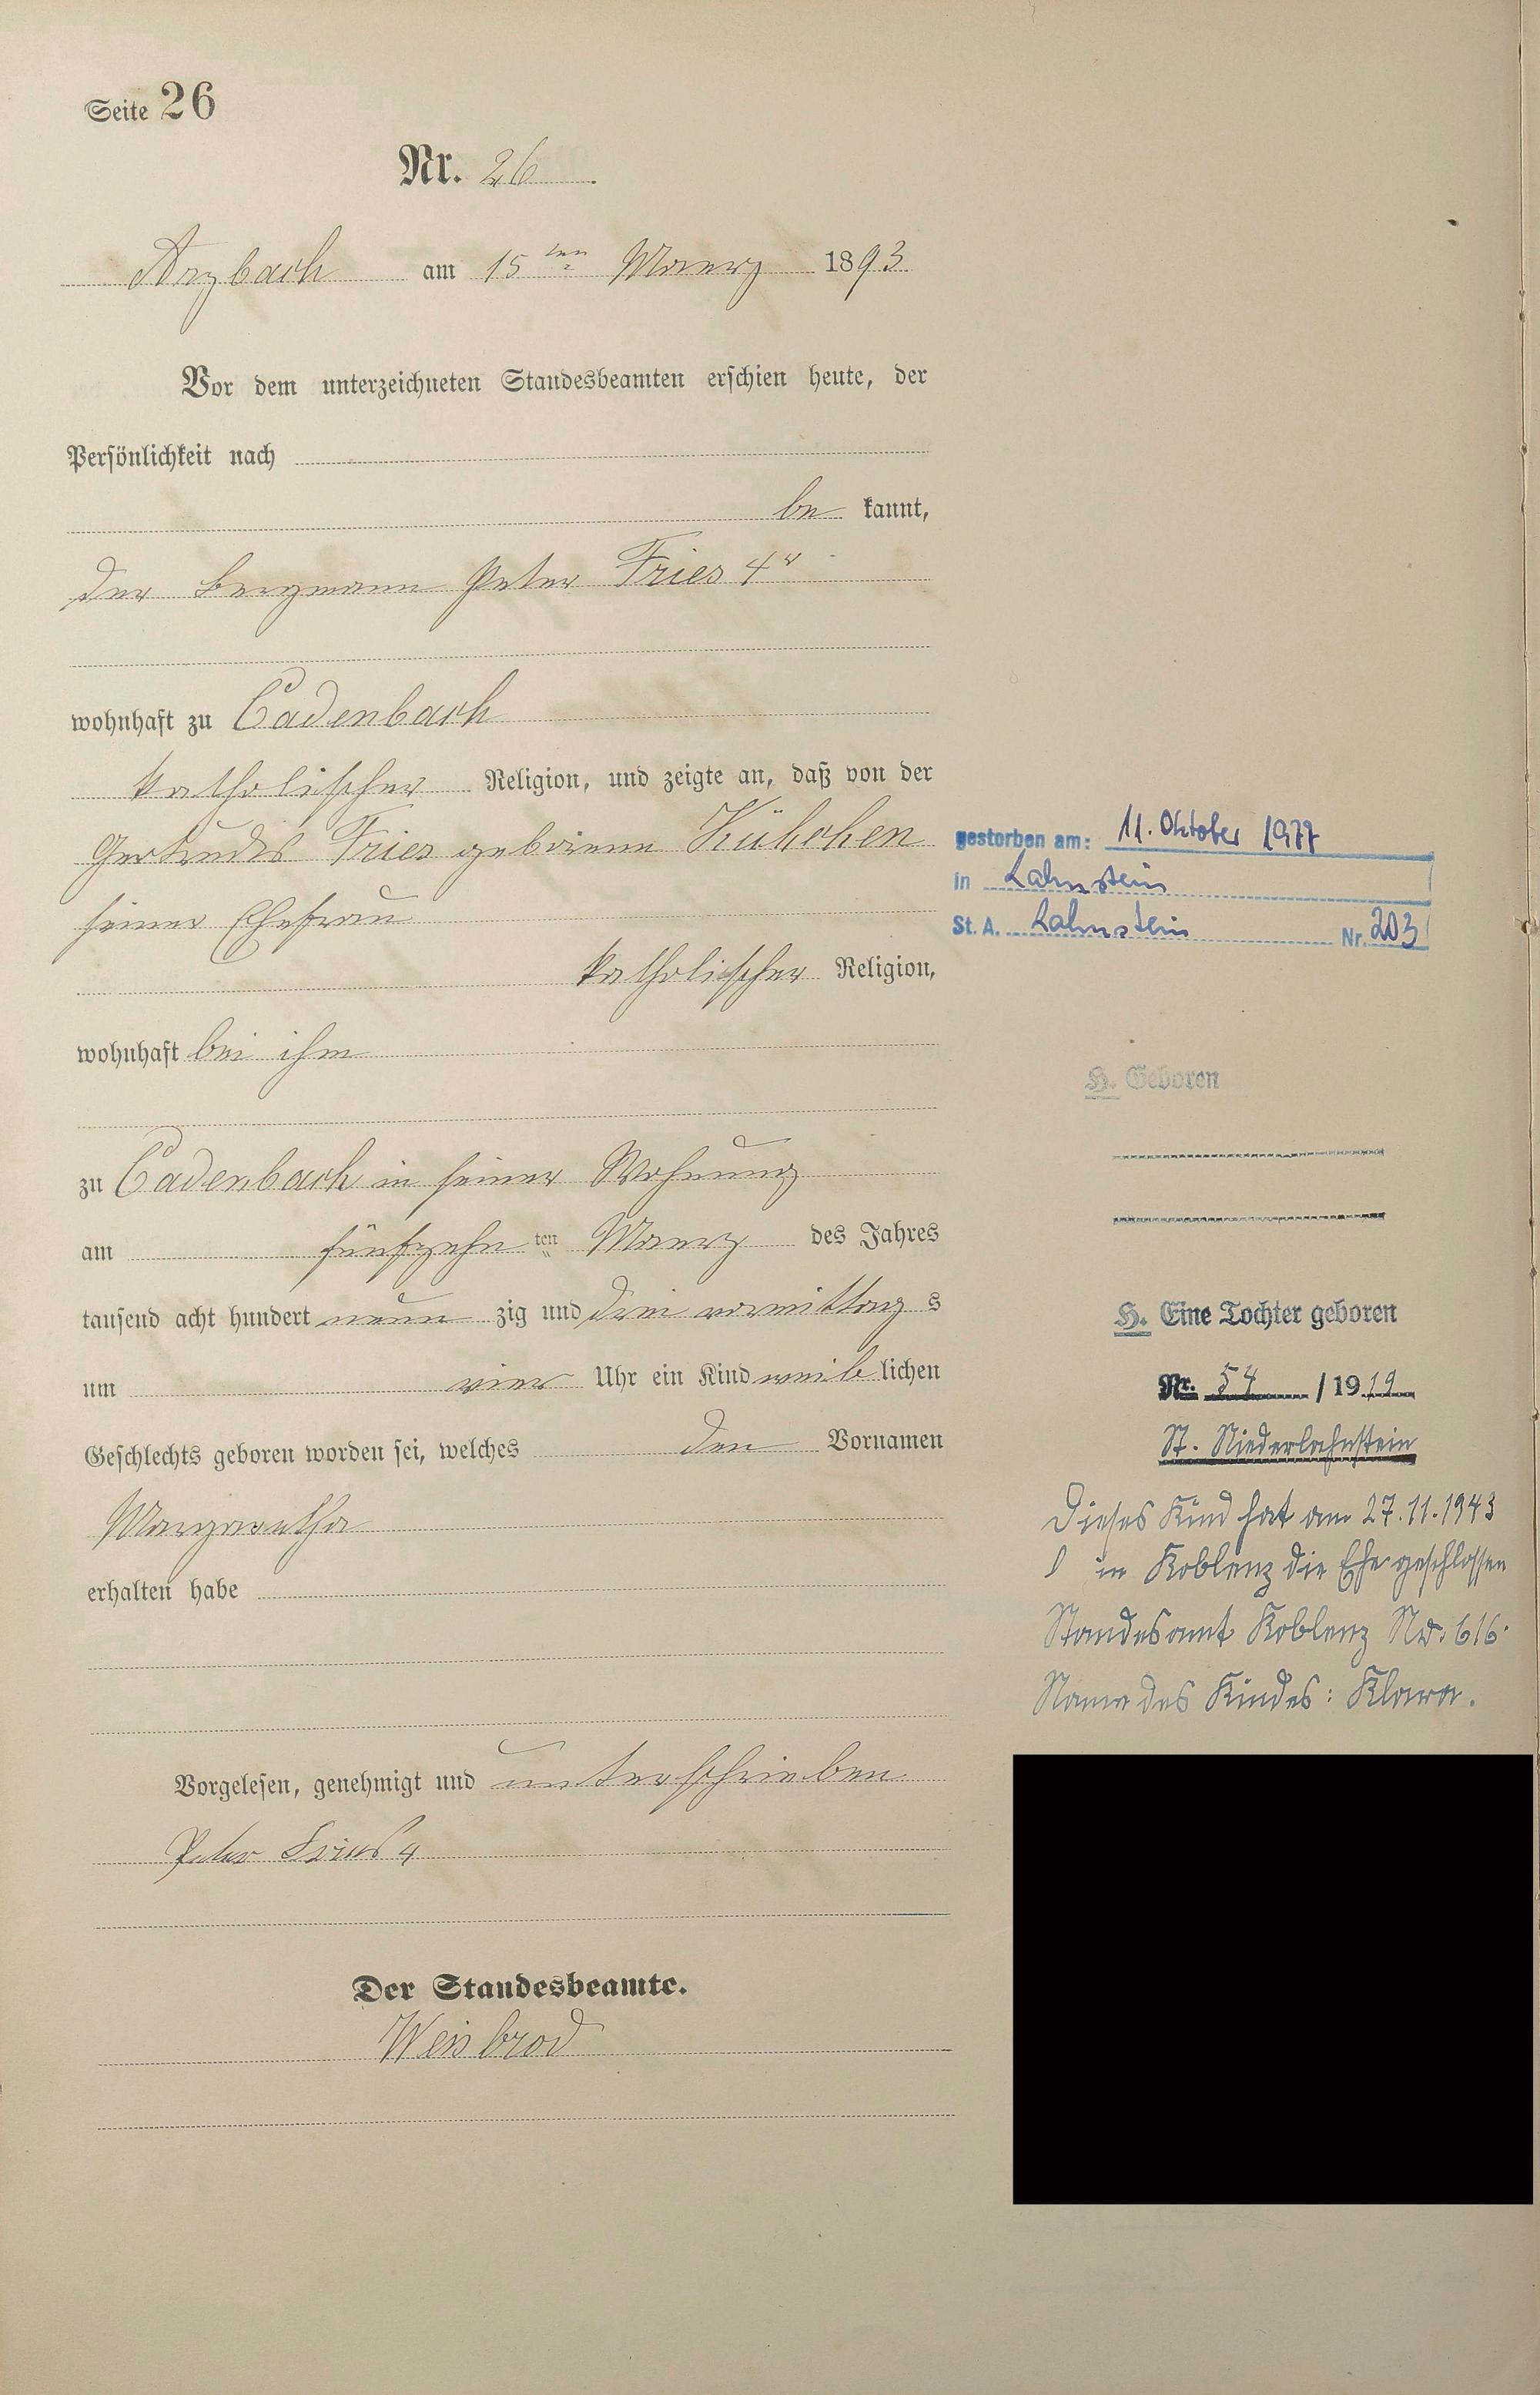 Seite 26
Nr. 26
Arzbach am 15ten Maerz 1893
Vor dem unterzeichneten Standesbeamten erschien heute, der
Persönlichkeit nach
be kannt,
der Bergmann Peter Fries 4r
wohnhaft zu Cadenbach
katholischer Religion, und zeigte an, daß von der
Gertrudis Fries geborene Kübchen
seiner Ehefrau
katholischer Religion,
wohnhaft bei ihm
zu Cadenbach in seiner Wohnung
am fünfzehn ten Maerz des Jahres
tausend acht hundert neun zig und drei vormittag s
um vier Uhr ein Kind weib lichen
Geschlechts geboren worden sei, welches den Vornamen
Margaretha
erhalten habe
Vorgelesen, genehmigt und unterschrieben
Peter Fries 4
Der Standesbeamte.
Weisbrod
gestorben am: 11. Oktober 1977
in Lahnstein
St. A. Lahnstein Nr. 203
H. Geboren
H. Eine Tochter geboren
Nr. 54 / 1919
St. Niederlahnstein
Dieses Kind hat am 27.11.1943
in Koblenz die Ehe geschlossen
Standesamt Koblenz Nr. 616.
Name des Kindes: Klara.